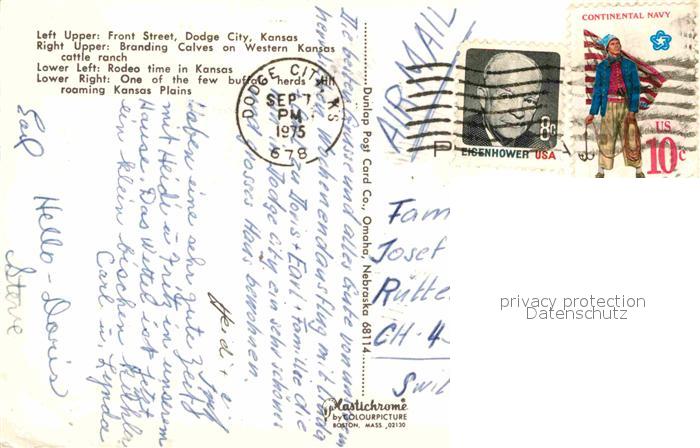 Left Upper: Front Street, Dodge City, Kansas
Right Upper: Branding Calves on Western Kansas
cattle ranch
Lower Left: Rodeo time in Kansas
Lower Right: One of the few buffalo herds still
roaming Kansas Plains
DODGE CITY, KS
SEP 7
PM
1975
678
AIR MAIL
8c
EISENHOWER USA
CONTINENTAL NAVY
US
10c
Dunlap Post Card Co., Omaha, Nebraska 68114
Die besten Grüsse und alles Gute von
Wochenendausflug mit
zu Doris + Earl + Familie die
Dodge City ein sehr schönes
und grosses Haus bewohnen.
Heidi +
Haben eine sehr gute Zeit
mit Heidi u Fritz in unserem
Hause. Das Wetter ist jetzt
ein klein bischen kühler.
Carl u. Lynda
Earl
Hello - Doris
Steve
Fam
Josef
Rütte
CH-4
Swit
privacy protection
Datenschutz
Plastichrome
by COLOURPICTURE
BOSTON, MASS. 02130